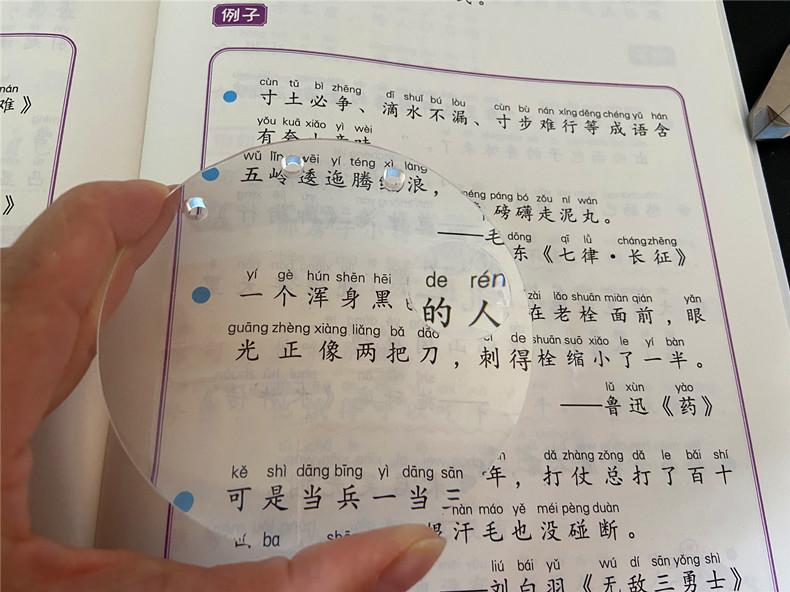 例子
cùn tǔ bì zhēng dī shuǐ bú lòu cùn bù nán xíng děng chéng yǔ hán
寸土必争、滴水不漏、寸步难行等成语含
yǒu kuā xiǎo yì wèi
有夸小意味
wǔ lǐng wēi yí téng xì làng
五岭逶迤腾细浪，
páng bó zǒu ní wán
磅礴走泥丸。
——毛
dōng qī lǜ cháng zhēng
东《七律·长征》
yí gè hún shēn hēi de rén zài lǎo shuān miàn qián yǎn
一个浑身黑的人在老栓面前，眼
guāng zhèng xiàng liǎng bǎ dāo de shuān suō xiǎo le yí bàn
光正像两把刀，刺得栓缩小了一半。
lǔ xùn yào
——鲁迅《药》
kě shì dāng bīng yì dāng sān dǎ zhàng zǒng dǎ le bǎi shí
可是当兵一当三年，打仗总打了百十
ba hàn máo yě méi pèng duàn
汗毛也没碰断。
liú bái yǔ wú dí sān yǒng shì
——刘白羽《无敌三勇士》
nán
难》
》